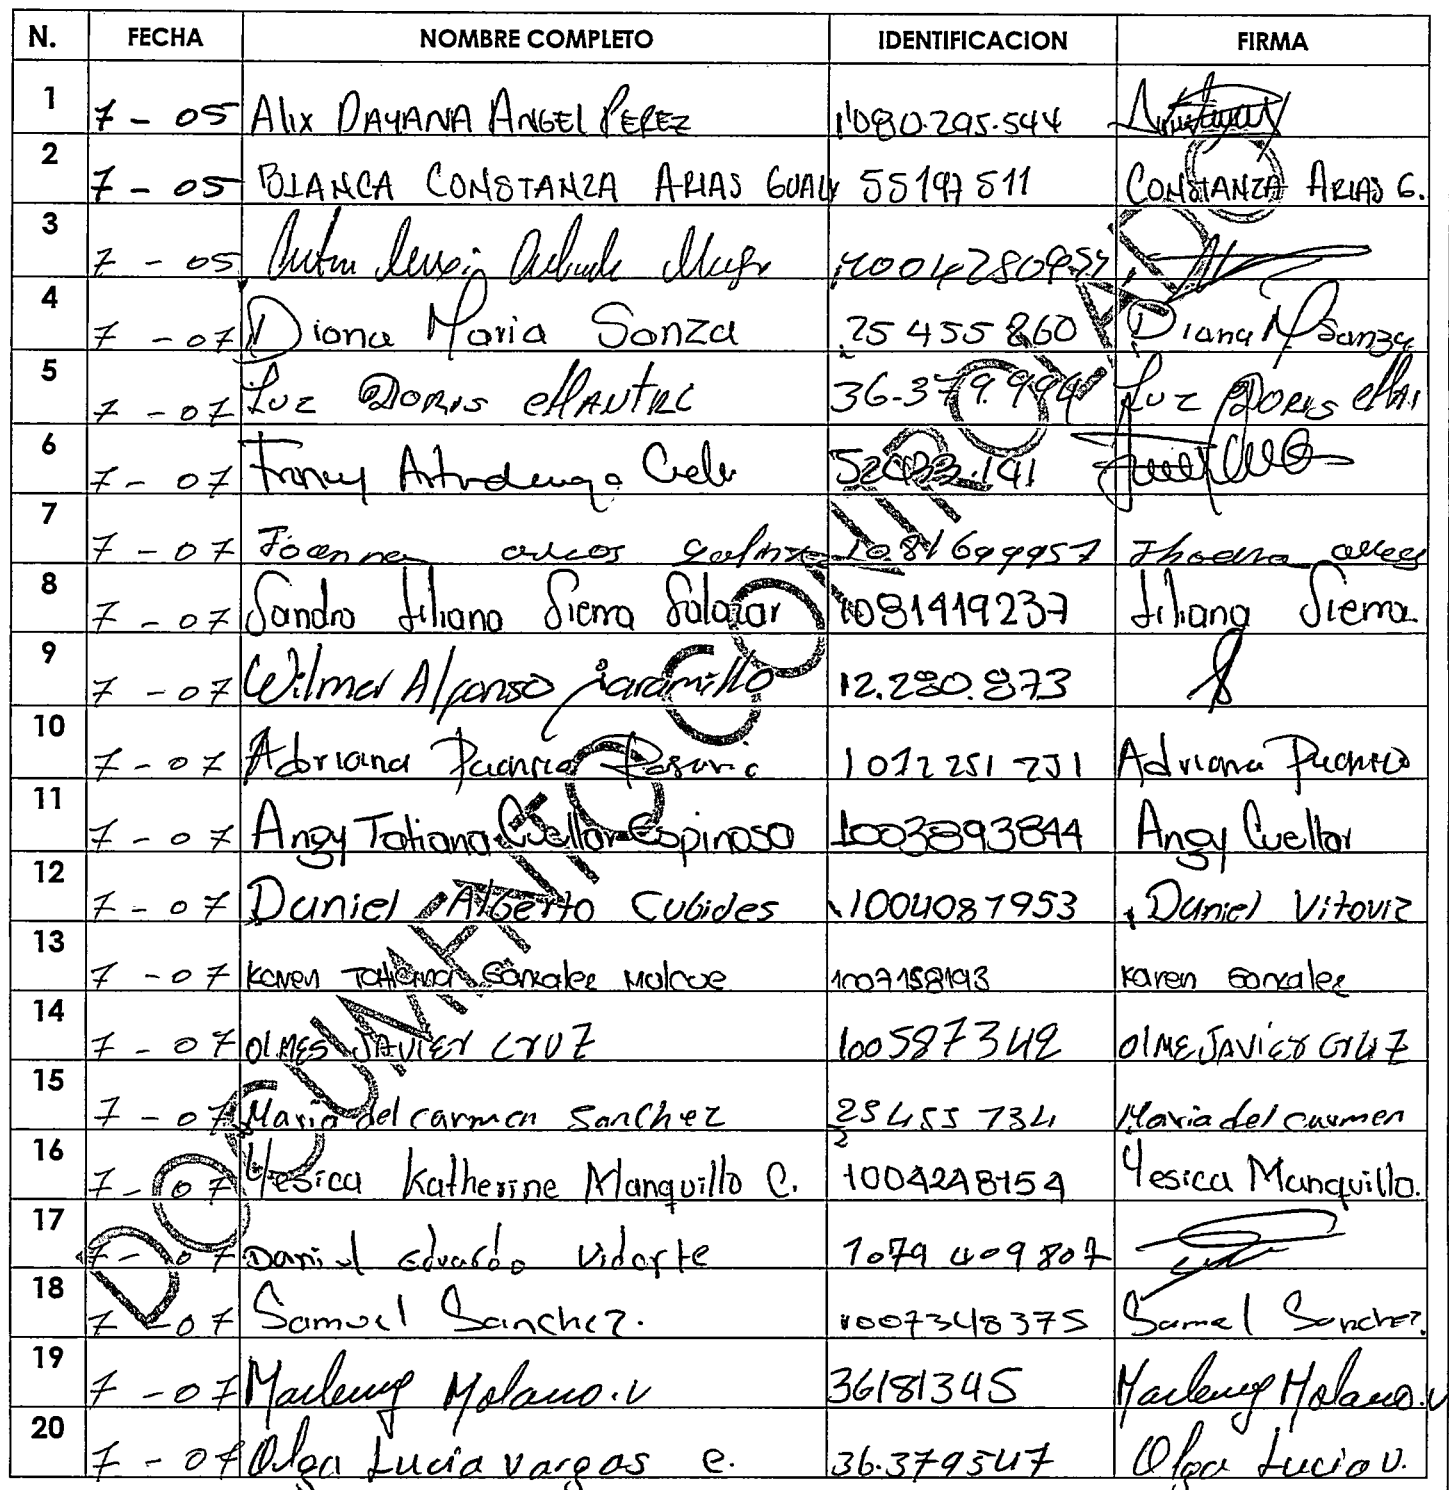 N. FECHA NOMBRE COMPLETO IDENTIFICACION FIRMA
1 7 - 05 Alix DAYANA ANGEL PEREZ 1'080.295.544
2 7 - 05 BLANCA CONSTANZA ARIAS GUALY 55197511 CONSTANZA ARIAS G.
3 7 - 05
4 7 - 07 Diana Maria Sanza 25 455 860 Diana M Sanza
5 7 - 07 Luz DORIS 36.379.994 Luz DORIS
6 7 - 07
7 7 - 07 1081699957
8 7 - 07 Sandra Liliana Sierra Salazar 1081419237 Liliana Sierra
9 7 - 07 Wilmer Alfonso jaramillo 12.280.873
10 7 - 07 Adriana 1012251231 Adriana
11 7 - 07 Angy Tatiana Cuellar Espinosa 1003893844 Angy Cuellar
12 7 - 07 Daniel Alberto Cubides 1004087953 Daniel Vitoviz
13 7 - 07 Karen Tatiana Gonzalez 1007158193 Karen Gonzalez
14 7 - 07 OlMES JAVIER CRUZ 100587342 OlME JAVIER CRUZ
15 7 - 07 Maria del carmen Sanchez 25455734 Maria del carmen
16 7 - 07 Yesica Katherine Manquillo C. 1004248154 Yesica Manquillo.
17 7 - 07 Daniel Eduardo Vidarte 1079 409807
18 7 - 07 Samuel Sanchez. 1007348375 Samel Sanchez.
19 7 - 07 Marleny Molano.v 36181345 Marleny Molano.v
20 7 - 07 Olga Lucia vargas e. 36.379547 Olga Lucia v.
DOCUMENTO CONTROLADO